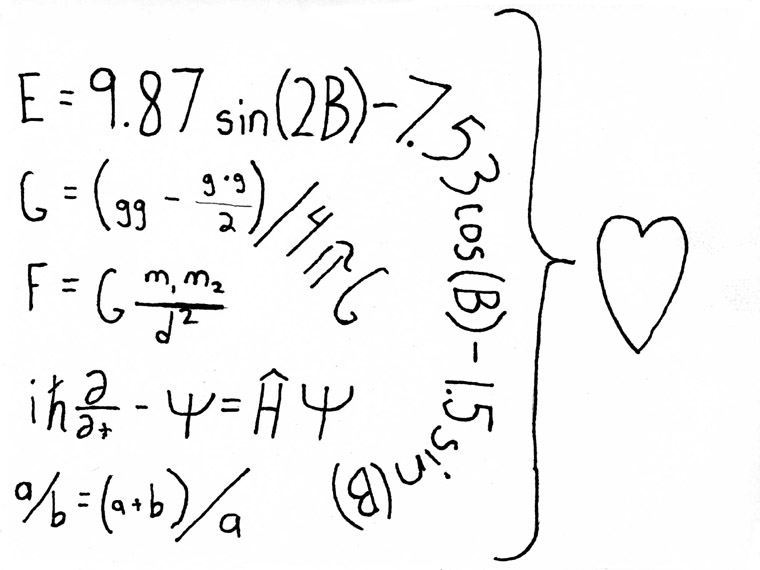 E = 9.87 sin(2B) - 7.53 cos(B) - 1.5 sin(B)
G = (gg - g·g/2) / 4πG
F = G m₁m₂/d²
iħ ∂/∂t - Ψ = Ĥ Ψ
a/b = (a+b)/a